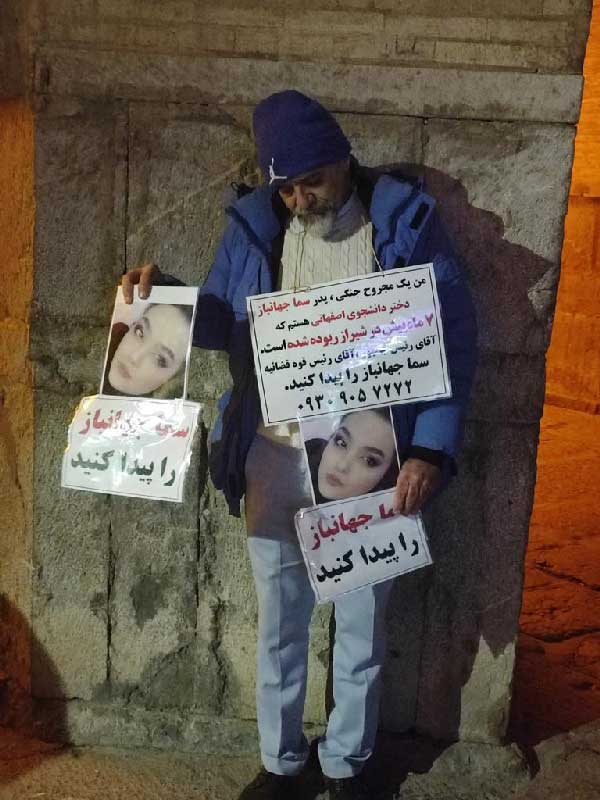 من یک مجروح جنگی، پدر سما جهانباز
دختر دانشجوی اصفهانی هستم که
۷ ماه پیش در شیراز ربوده شده است.
آقای رئیس جمهور، آقای رئیس قوه قضائیه
سما جهانباز را پیدا کنید.
۰۹۳۰ ۹۰۵ ۷۲۷۲
سما جهانباز
را پیدا کنید
سما جهانباز
را پیدا کنید